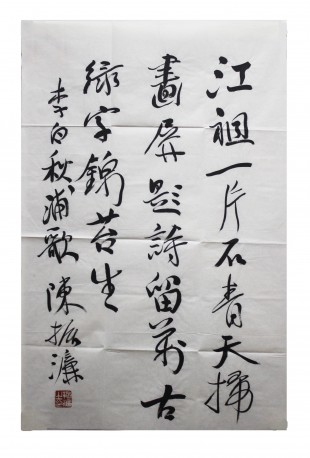 江祖一片石青天掃
畫屏題詩留萬古
綠字錦苔生
李白秋浦歌 陳振濂